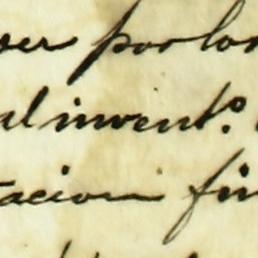 ver por los
al invent.º
tacion fin